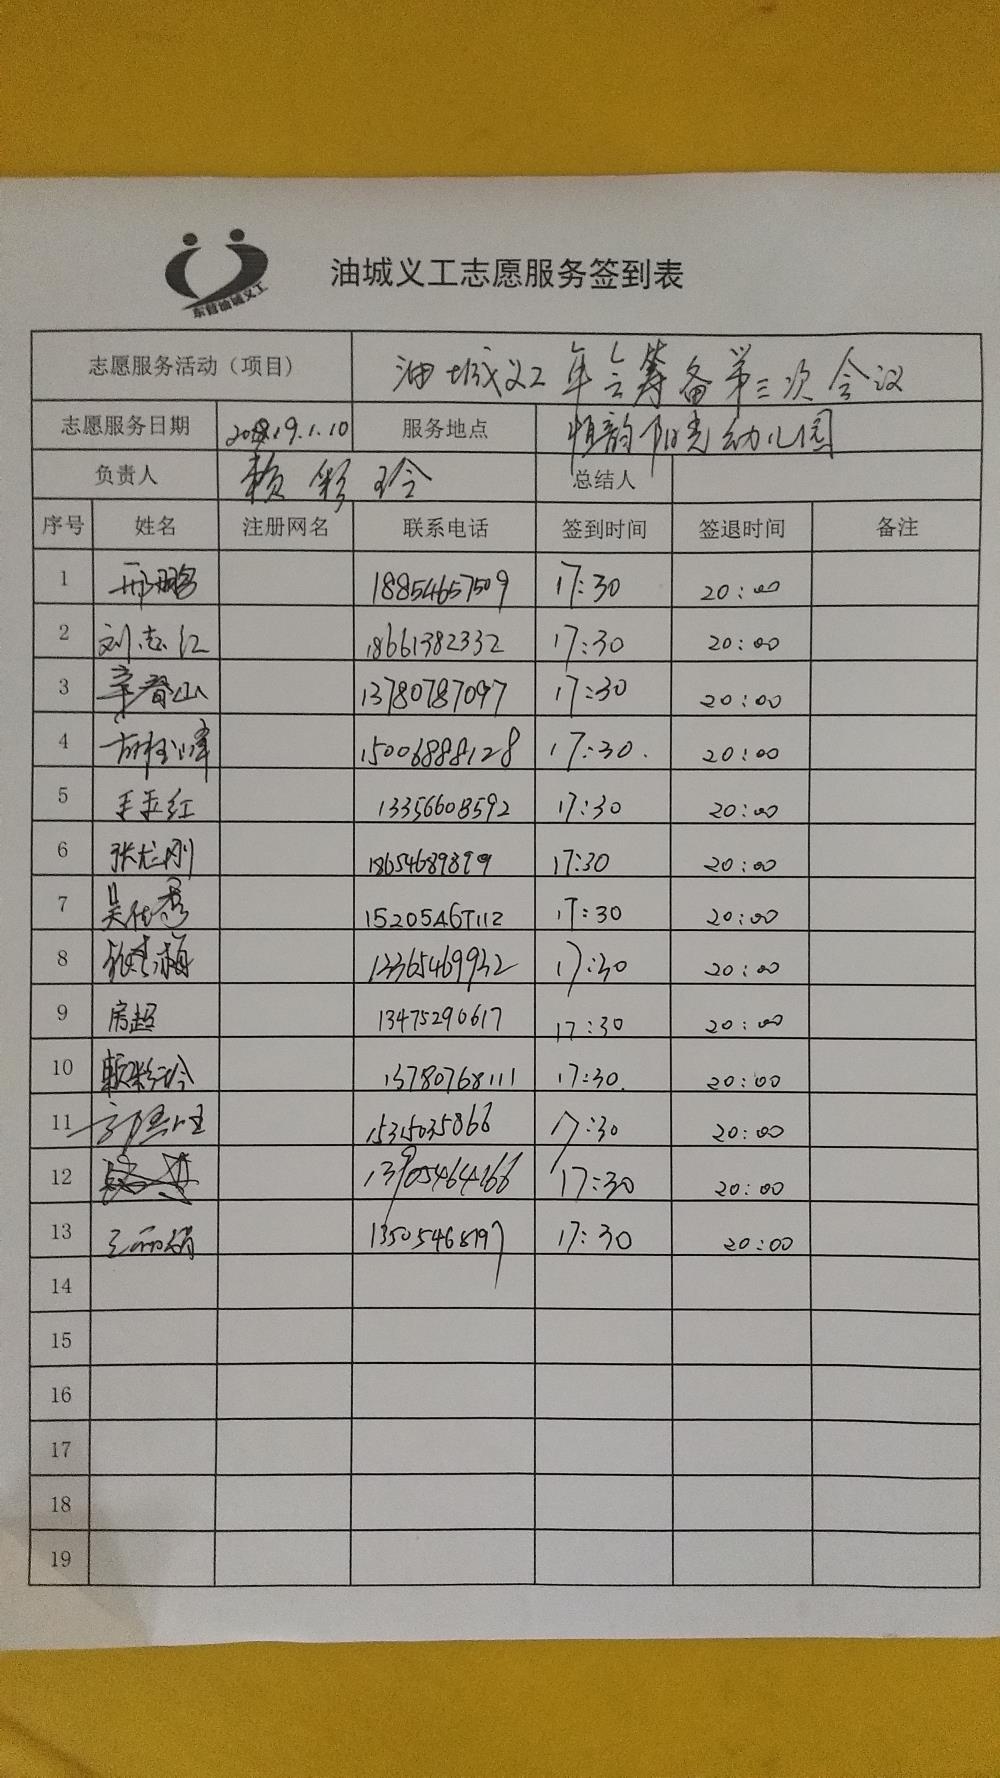 东营油城义工
油城义工志愿服务签到表
志愿服务活动（项目） 油城义工年会筹备第三次会议
志愿服务日期 2019.1.10 服务地点 恒韵阳光幼儿园
负责人 赖彩玲 总结人
序号 姓名 注册网名 联系电话 签到时间 签退时间 备注
1 邢鹏 18854657509 17:30 20:00
2 刘志红 18661382332 17:30 20:00
3 辛春山 13780787097 17:30 20:00
4 15006888128 17:30. 20:00
5 13356608592 17:30 20:00
6 张尤刚 18654689899 17:30 20:00
7 吴仕秀 15205467112 17:30 20:00
8 13365469932 17:30 20:00
9 房超 13475290617 17:30 20:00
10 赖彩玲 13780768111 17:30. 20:00
11 17:30 20:00
12 13905464266 17:30 20:00
13 17:30 20:00
14
15
16
17
18
19